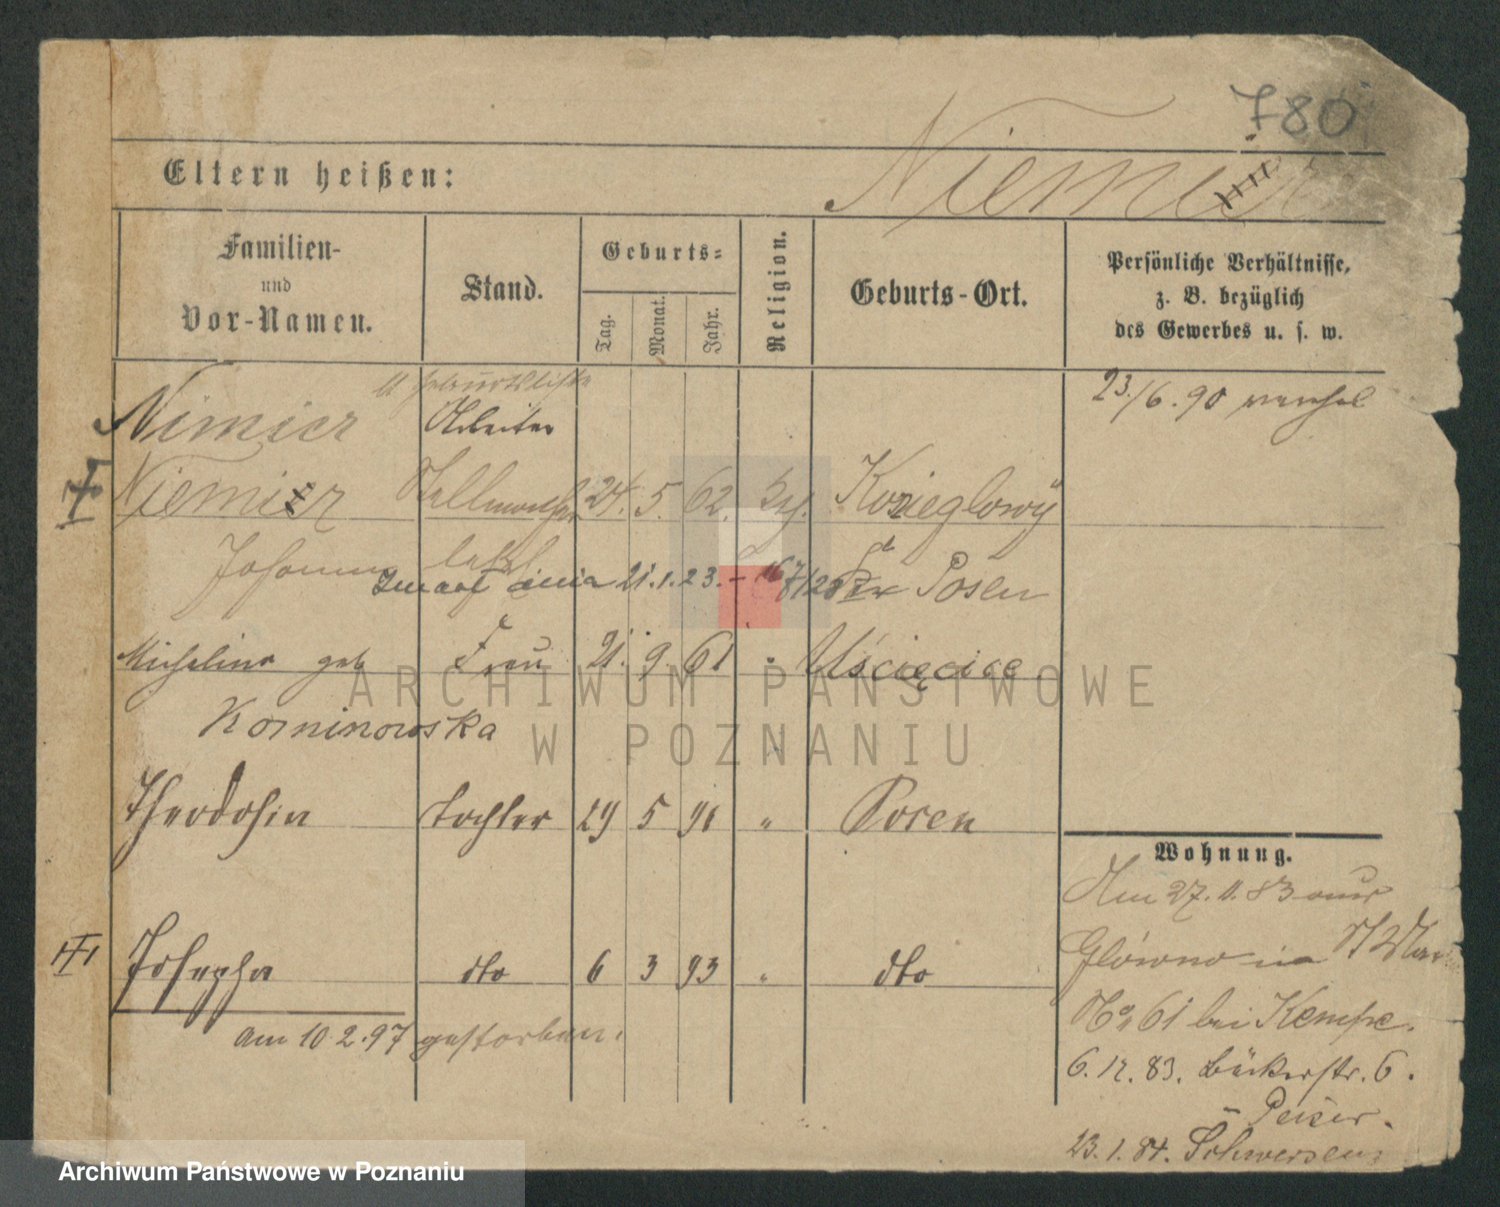 780
Eltern heißen:
Niemier
Familien- und Vor-Namen.
Stand.
Geburts-
Tag.
Monat.
Jahr.
Religion.
Geburts-Ort.
Persönliche Verhältnisse,
z. B. bezüglich
des Gewerbes u. s. w.
23./6. 90
Nimier Arbeiter
Niemier 24. 5. 62. Kozieglowy
Johann
21. 1. 23. Posen
Michalina geb Frau 21. 9. 61 Uścięcice
Korninowska
Theodosia Tochter 29 5 91 " Posen
Josepha dto 6 3 93 " dto
am 10 2. 97 gestorben.
Wohnung.
Am 27. 11. 83 aus
Glówno in St Mar
No 61 bei Kempe.
6. 12. 83. Bäckerstr. 6.
- Peiser.
23. 1. 84. Schwersenz
ARCHIWUM PAŃSTWOWE
W POZNANIU
Archiwum Państwowe w Poznaniu